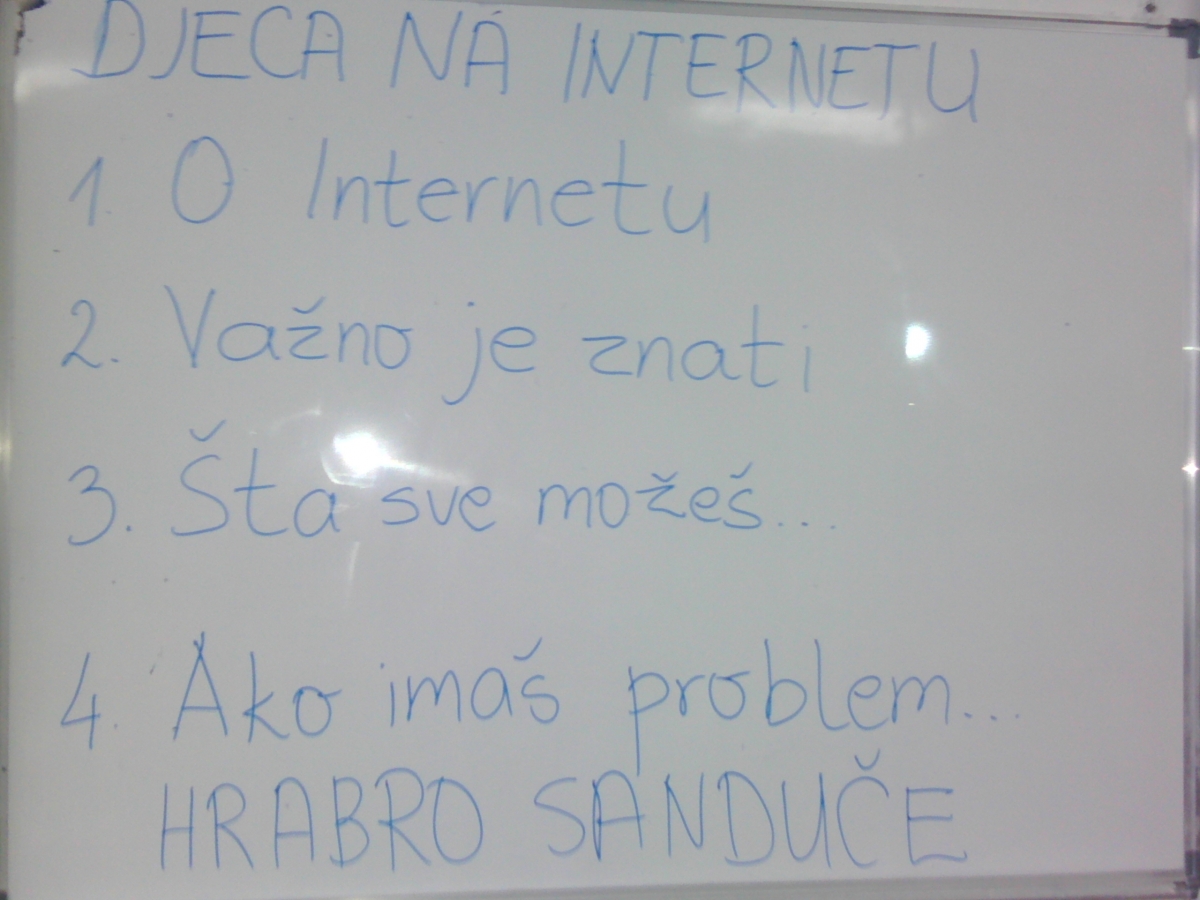 DJECA NA INTERNETU
1. O Internetu
2. Važno je znati
3. Šta sve možeš...
4. Ako imaš problem...
HRABRO SANDUČE